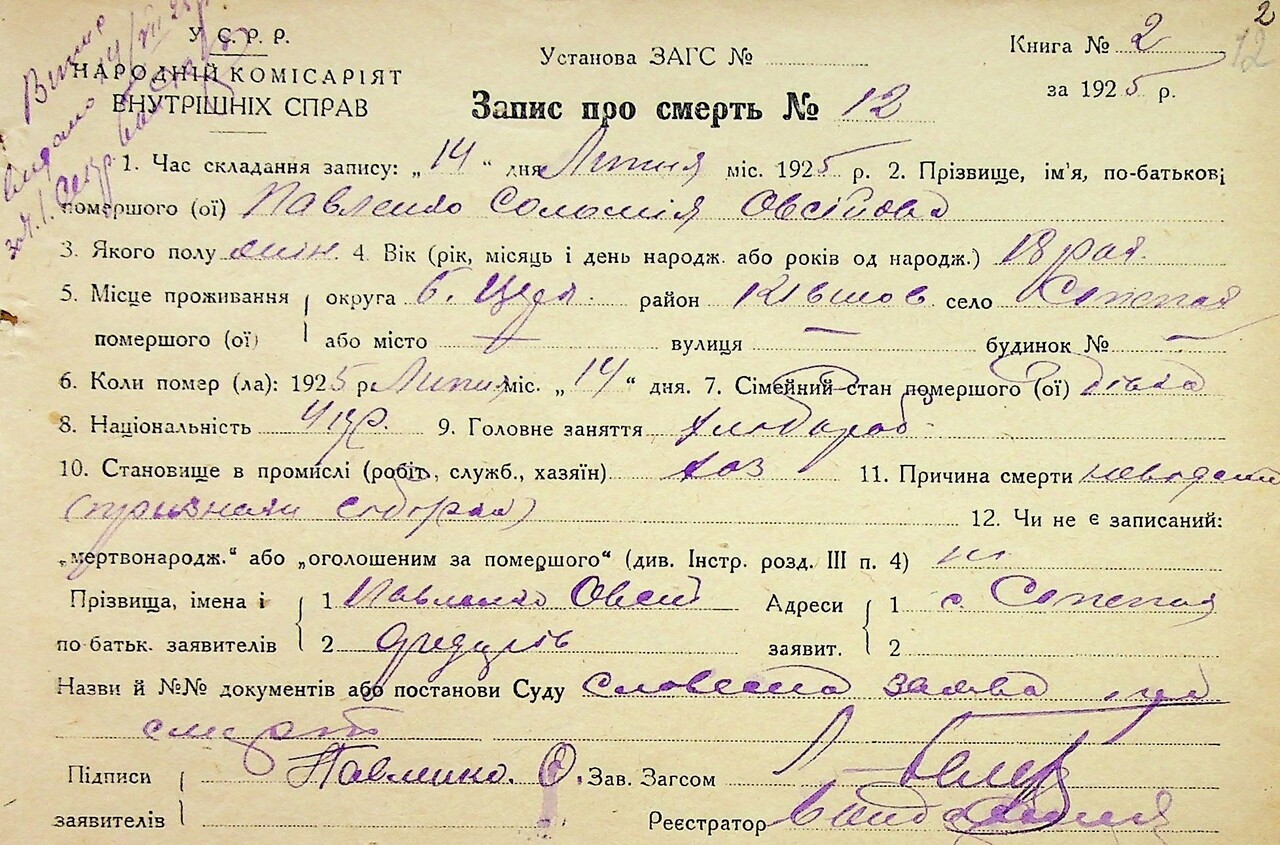 2
12
У. С. Р. Р.
НАРОДНІЙ КОМІСАРІЯТ
ВНУТРІШНІХ СПРАВ
Установа ЗАГС №
Книга № 2
за 1925 р.
Запис про смерть № 12
1. Час складання запису: „14“ дня Липня міс. 1925 р. 2. Прізвище, ім'я, по-батькові
помершого (ої) Павленко Соломія Овсіївна
3. Якого полу жін. 4. Вік (рік, місяць і день народж. або років од народж.) 18
5. Місце проживання округа Б. Церк. район село
помершого (ої) або місто — вулиця — будинок № —
6. Коли помер (ла): 1925 р. Липня міс. „14“ дня. 7. Сімейний стан помершого (ої) дівка
8. Національність укр. 9. Головне заняття хлібороб
10. Становище в промислі (робіт., служб., хазяїн) хаз 11. Причина смерти
12. Чи не є записаний:
„мертвонародж.“ або „оголошеним за помершого“ (див. Інстр. розд. III п. 4) ні
Прізвища, імена і 1 Павленко Овсій Адреси 1 с.
по батьк. заявителів 2 заявит. 2
Назви й №№ документів або постанови Суду словесна заява про
смерть
Підписи Павленко. О. Зав. Загсом
заявителів Реєстратор